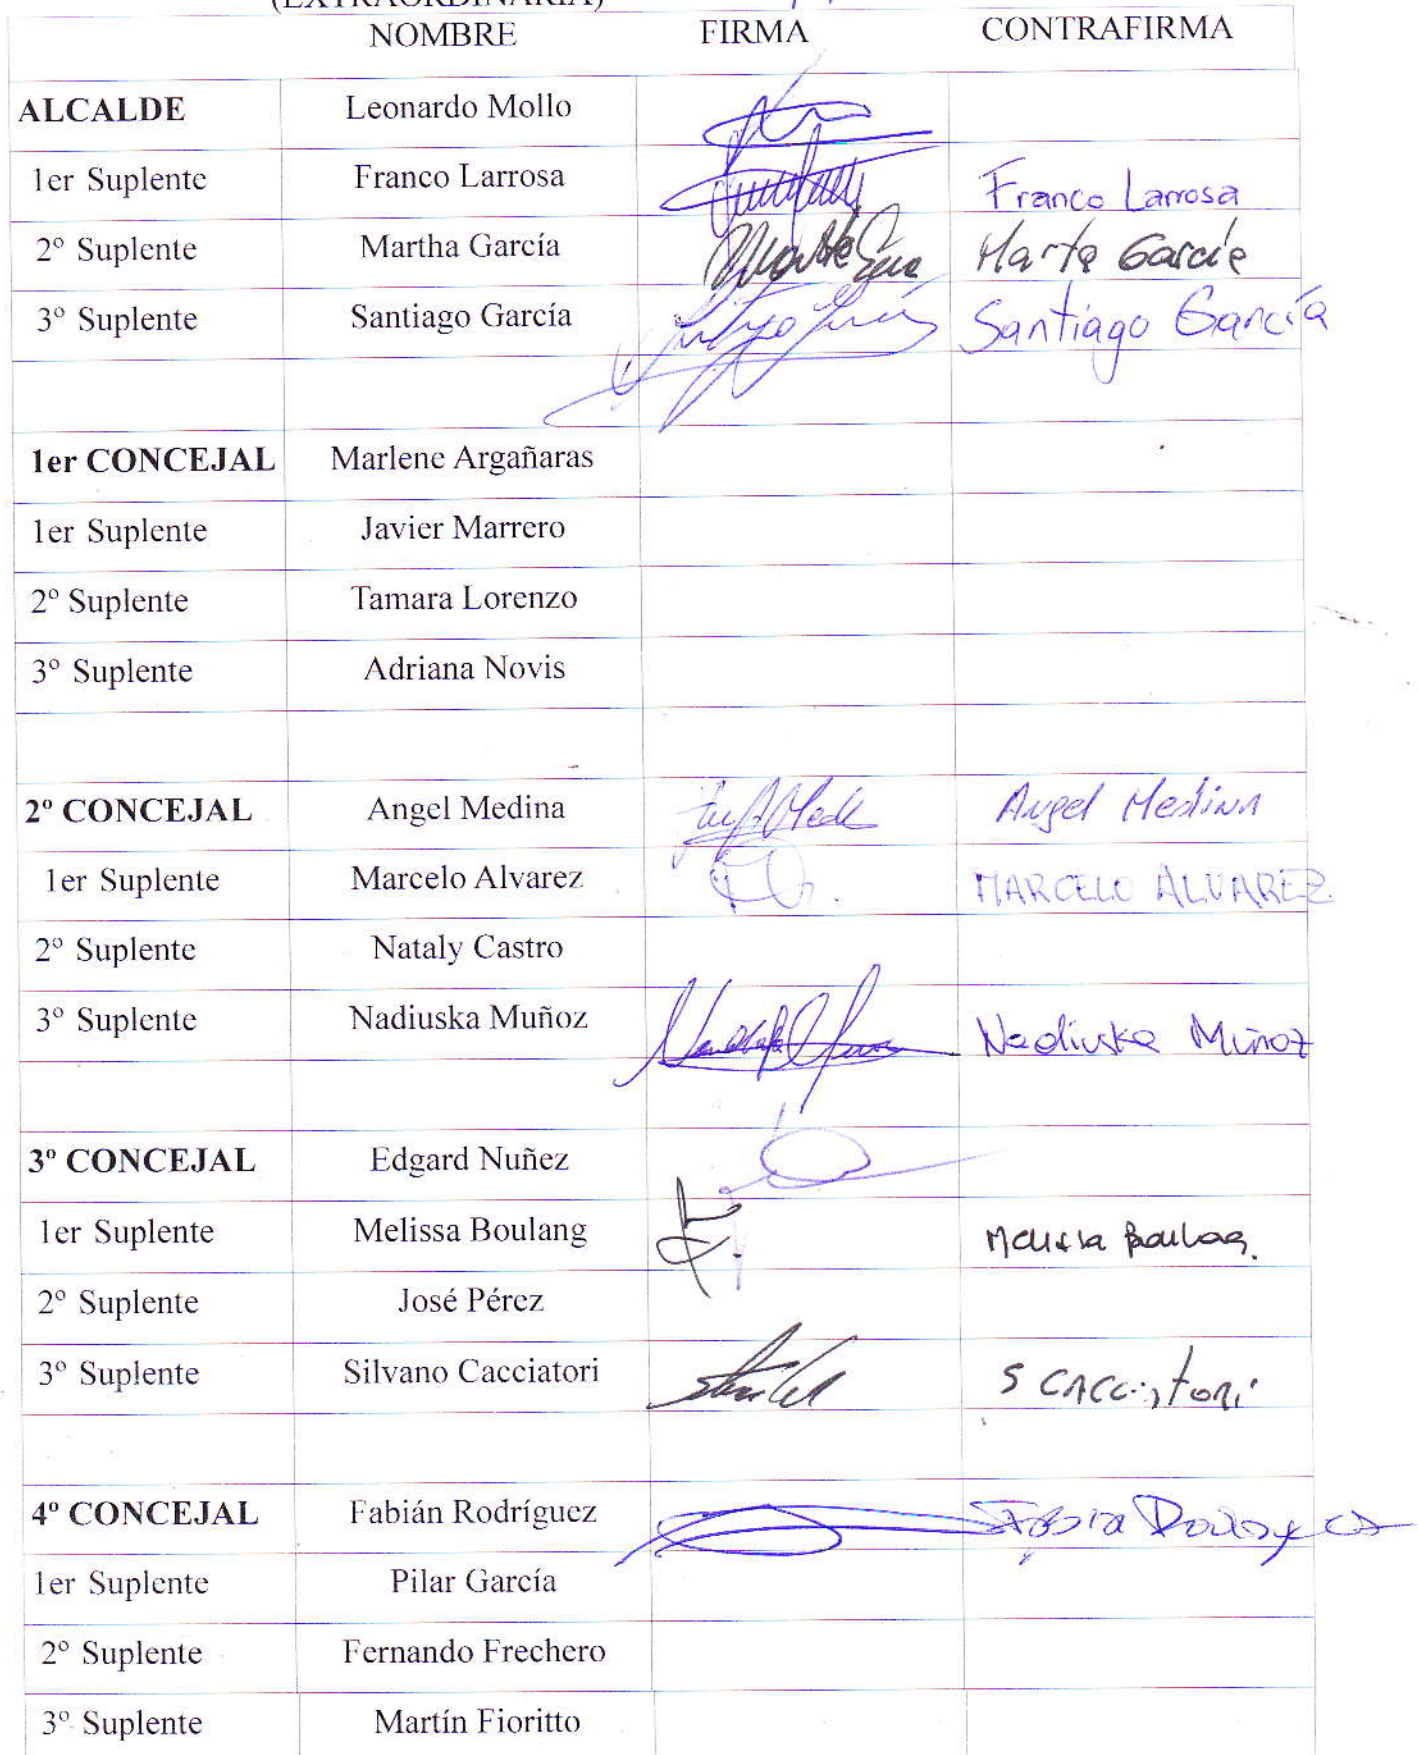 (EXTRAORDINARIA)
NOMBRE FIRMA CONTRAFIRMA
ALCALDE Leonardo Mollo
1er Suplente Franco Larrosa Franco Larrosa
2º Suplente Martha García Marta García
3º Suplente Santiago García Santiago García
1er CONCEJAL Marlene Argañaras
1er Suplente Javier Marrero
2º Suplente Tamara Lorenzo
3º Suplente Adriana Novis
2º CONCEJAL Angel Medina Angel Medina
1er Suplente Marcelo Alvarez MARCELO ALVAREZ
2º Suplente Nataly Castro
3º Suplente Nadiuska Muñoz Nadiuska Muñoz
3º CONCEJAL Edgard Nuñez
1er Suplente Melissa Boulang Melissa Boulag.
2º Suplente José Pérez
3º Suplente Silvano Cacciatori S CACCiatori
4º CONCEJAL Fabián Rodríguez
1er Suplente Pilar García
2º Suplente Fernando Frechero
3º Suplente Martín Fioritto